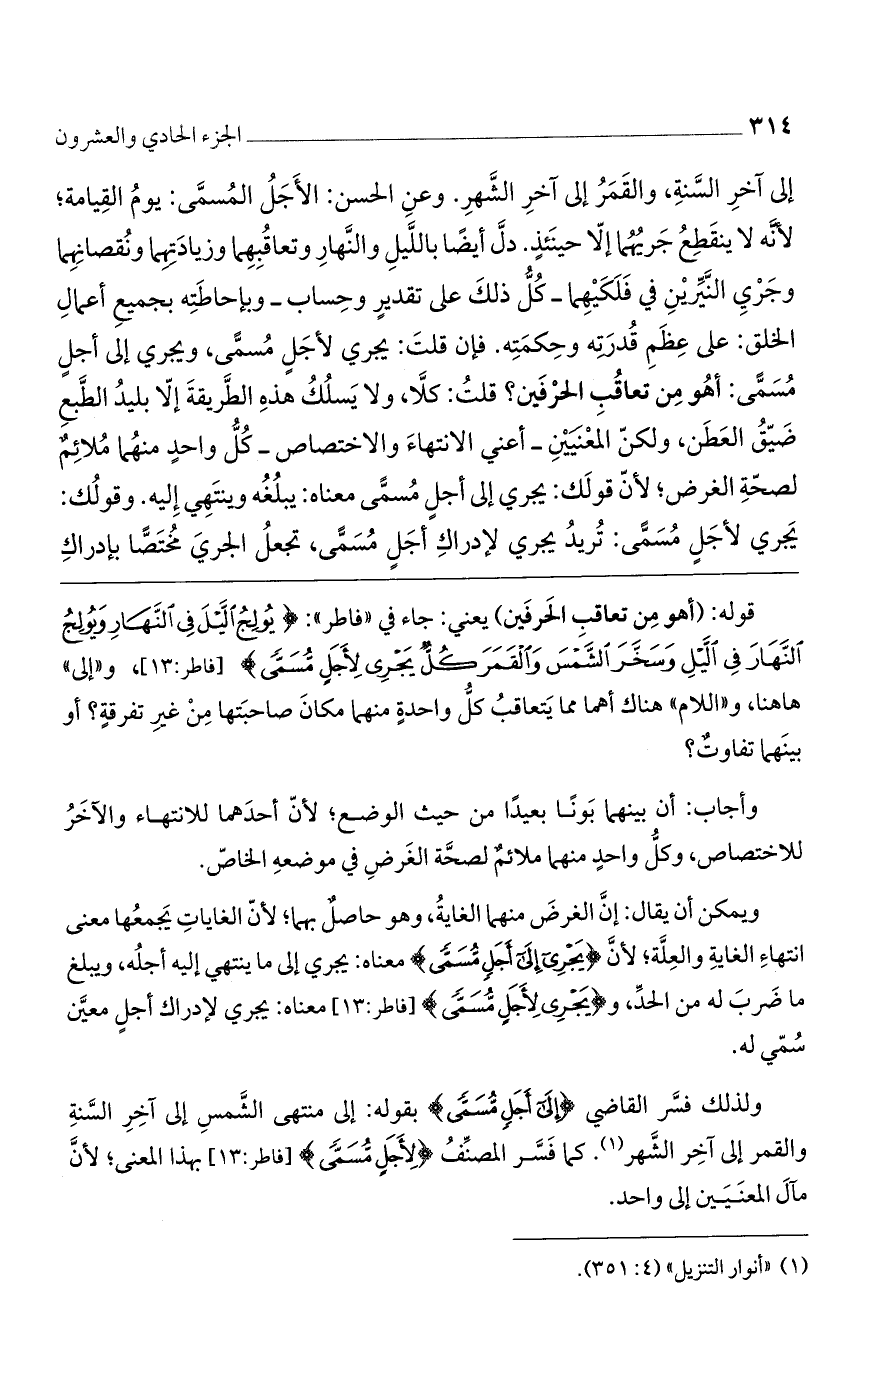 ٣١٤ الجزء الحادي والعشرون
إلى آخرِ السَّنةِ، والقَمَرُ إلى آخرِ الشَّهرِ. وعنِ الحسن: الأَجَلُ المُسمَّى: يومُ القِيامة؛
لأنَّه لا ينقَطِعُ جَريُهُما إلّا حينَئذٍ. دلَّ أيضًا باللَّيلِ والنَّهارِ وتعاقُبِهِما وزيادَتِهِما ونُقصانِهِما
وجَرْيِ النَّيِّرَيْنِ في فَلَكَيْهِما ـ كُلُّ ذلكَ على تقديرٍ وحِساب ـ وبإحاطَتِه بجميعِ أعمالِ
الخلق: على عِظَمِ قُدرَتِه وحِكمَتِه. فإن قلتَ: يجري لأجَلٍ مُسمًّى، ويجري إلى أجلٍ
مُسَمًّى: أهُو مِن تعاقُبِ الحرْفَين؟ قلتُ: كلَّا، ولا يَسلُكُ هذهِ الطَّريقةَ إلّا بليدُ الطَّبعِ
ضَيِّقُ العَطَن، ولكنّ المعْنَيَيْنِ ـ أعني الانتهاءَ والاختصاص ـ كُلُّ واحدٍ منهُما مُلائِمٌ
لصحّةِ الغرض؛ لأنّ قولَك: يجري إلى أجلٍ مُسمًّى معناه: يبلُغُه وينتَهِي إليه. وقولُك:
يَجري لأجَلٍ مُسَمًّى: تُريدُ يجري لإدراكِ أجَلٍ مُسَمًّى، تجعلُ الجريَ مُختَصًّا بإدراكِ
قوله: (أهو مِن تعاقبِ الحَرفَين) يعني: جاء في «فاطر»: ﴿يُولِجُ ٱلَّيْلَ فِى ٱلنَّهَارِ وَيُولِجُ
ٱلنَّهَارَ فِى ٱلَّيْلِ وَسَخَّرَ ٱلشَّمْسَ وَٱلْقَمَرَ كُلٌّ يَجْرِى لِأَجَلٍ مُّسَمًّى﴾ [فاطر:١٣]، و«إلى»
هاهنا، و«اللام» هناك أهما مما يَتعاقبُ كلُّ واحدةٍ منهما مكانَ صاحبَتها مِنْ غيرِ تفرقةٍ؟ أو
بينَهما تفاوتٌ؟
وأجاب: أن بينهما بَونًا بعيدًا من حيث الوضع؛ لأنّ أحدَهما للانتهاء والآخَرُ
للاختصاص، وكلُّ واحدٍ منهما ملائمٌ لصحَّة الغَرضِ في موضعهِ الخاصّ.
ويمكن أن يقال: إنَّ الغرضَ منهما الغايةُ، وهو حاصلٌ بهما؛ لأنّ الغاياتِ يَجمعُها معنى
انتهاءِ الغايةِ والعِلَّة؛ لأنَّ ﴿يَجْرِىٓ إِلَىٰٓ أَجَلٍ مُّسَمًّى﴾ معناه: يجري إلى ما ينتهي إليه أجلُه، ويبلغ
ما ضَربَ له من الحدِّ، و﴿يَجْرِى لِأَجَلٍ مُّسَمًّى﴾ [فاطر:١٣] معناه: يجري لإدراك أجلٍ معيَّن
سُمّي له.
ولذلك فسَّر القاضي ﴿إِلَىٰٓ أَجَلٍ مُّسَمًّى﴾ بقوله: إلى منتهى الشَّمسِ إلى آخِرِ السَّنةِ
والقمر إلى آخِر الشَّهر(١). كما فَسَّر المصنِّفُ ﴿لِأَجَلٍ مُّسَمًّى﴾ [فاطر:١٣] بهذا المعنى؛ لأنَّ
مآلَ المعنَيَين إلى واحد.
(١) «أنوار التنزيل» (٤: ٣٥١).